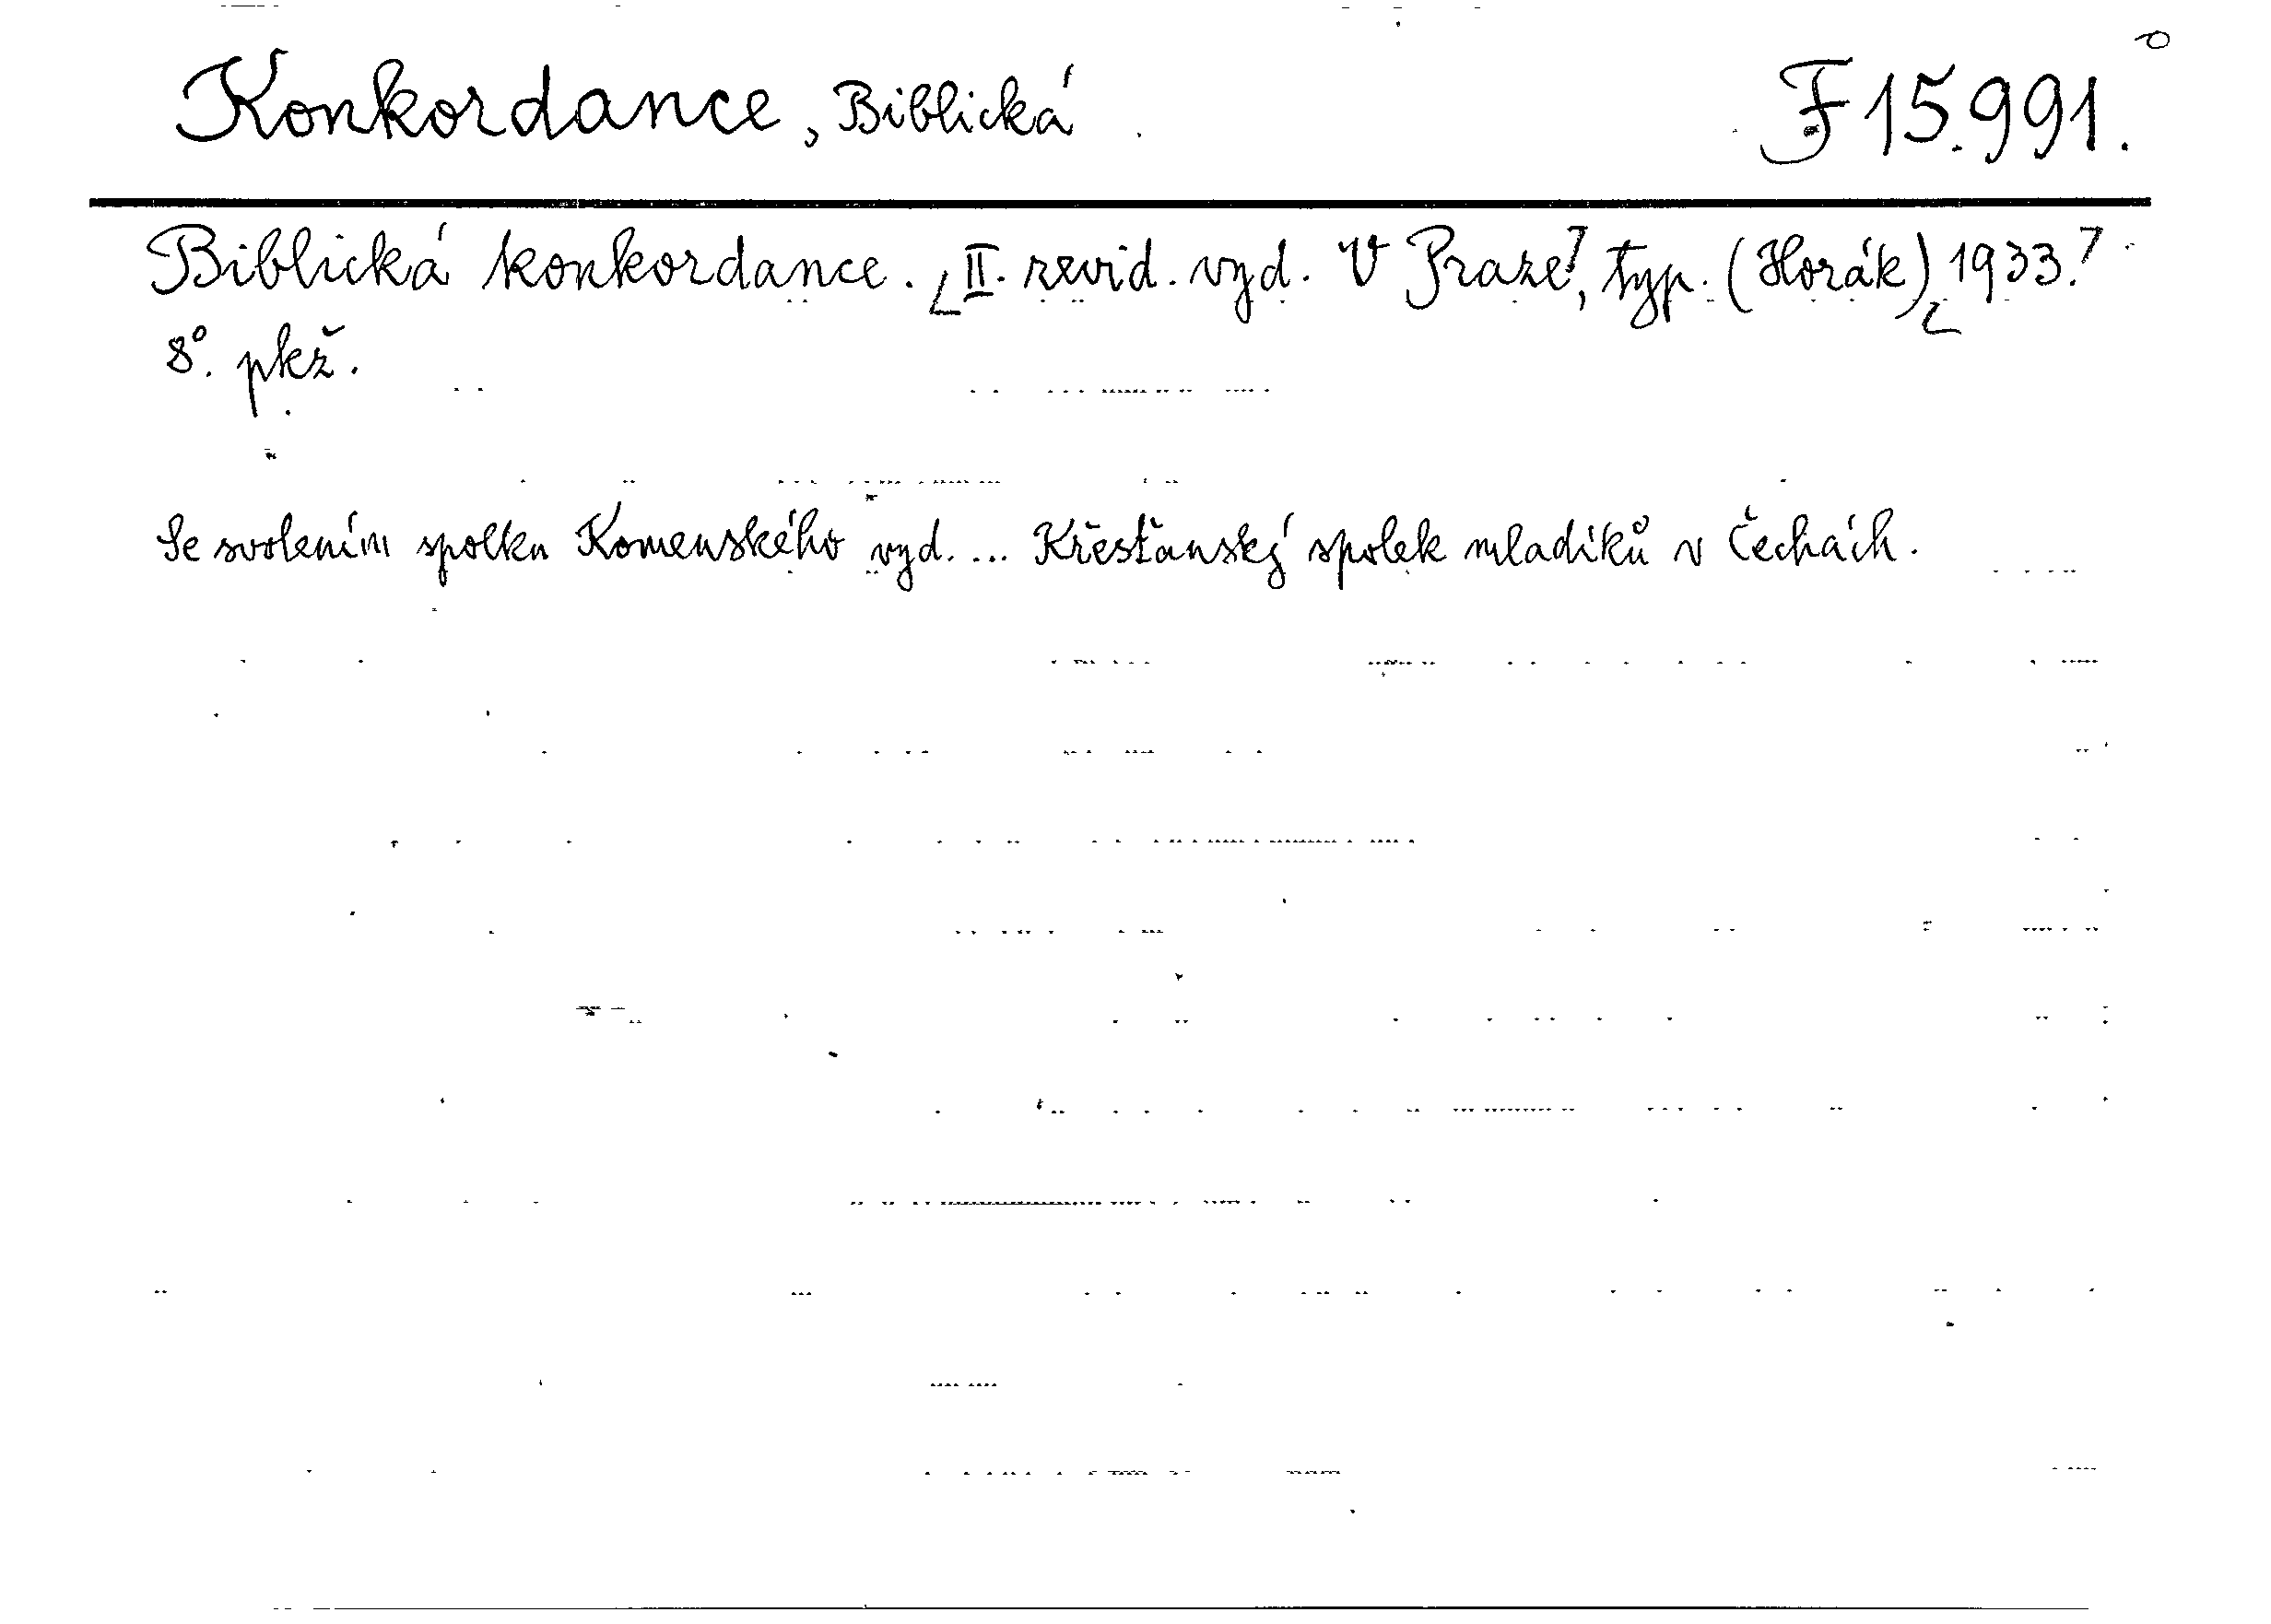 Konkordance, Biblická F 15.991.
Biblická konkordance. [II. revid. vyd. V Praze], typ. (Horák) [1933.]
8°. pkž.
Se svolením spolku Komenského vyd. ... Křesťanský spolek mladíků v Čechách.